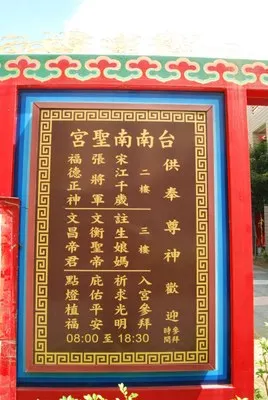 台南南聖宮
供奉尊神歡迎參拜時間
二樓
宋江千歲
張將軍
福德正神
三樓
註生娘媽
文衡聖帝
文昌帝君
入宮參拜
祈求光明
庇佑平安
點燈植福
08:00 至 18:30